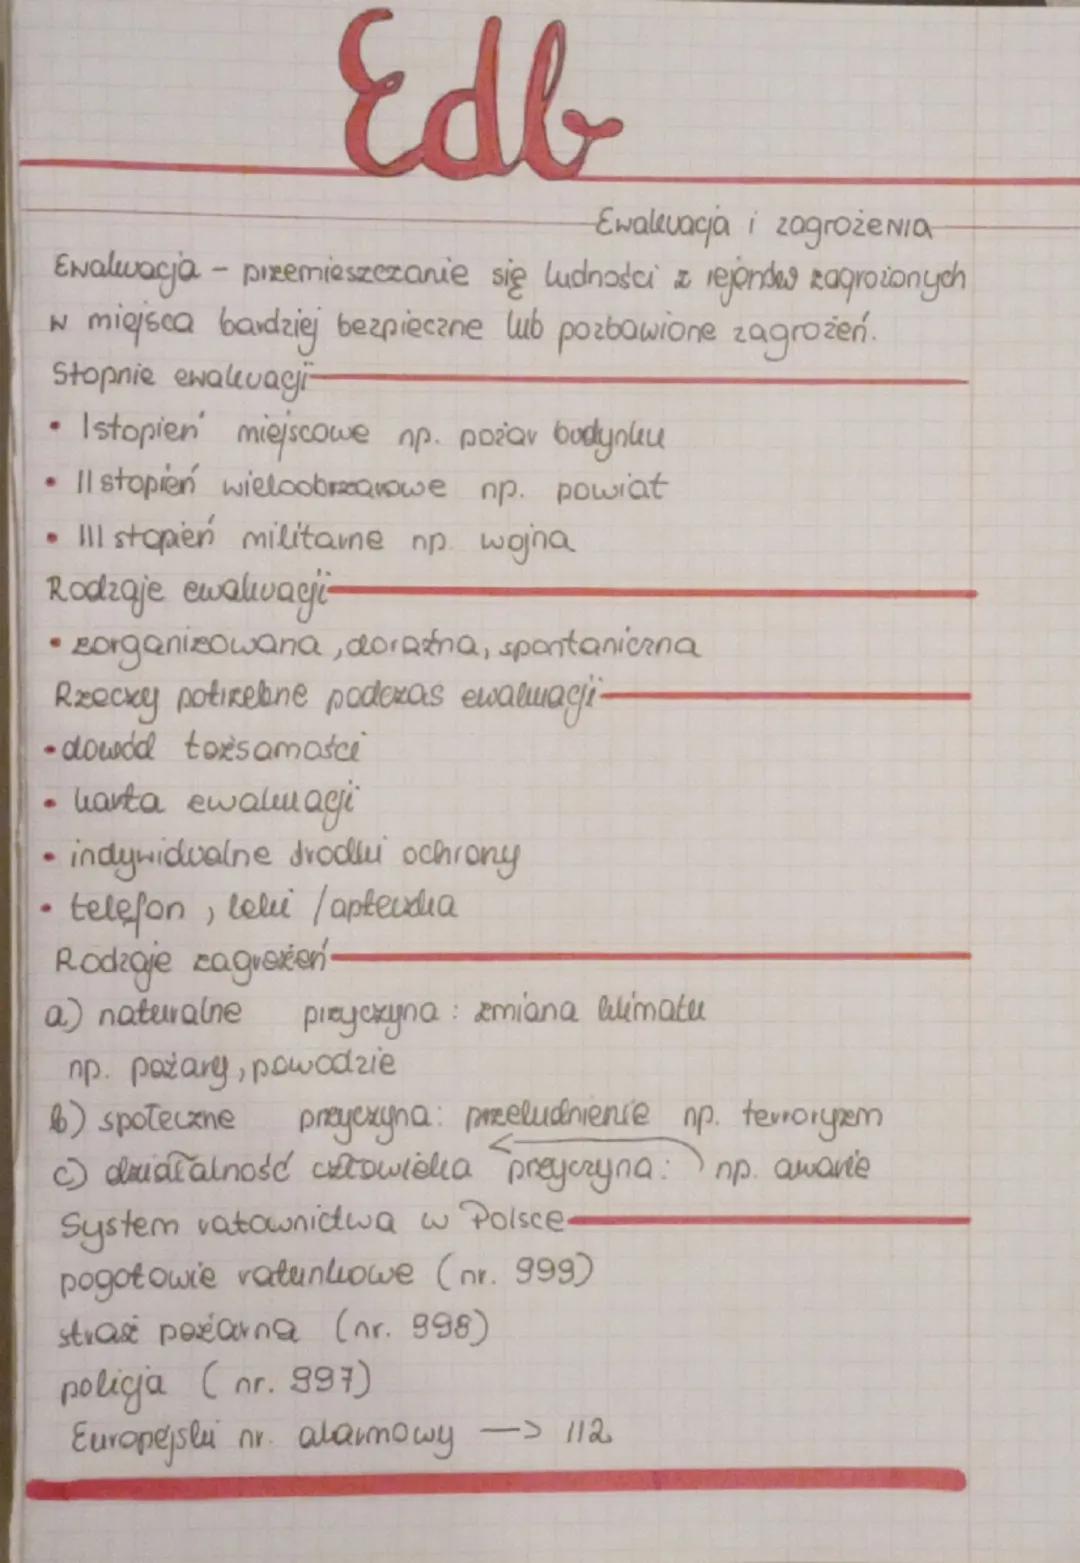 Edb
Ewakuacja i zagrożenia
Ewakuacja - przemieszczanie się ludności z rejonów zagrożonych
w miejsca bardziej bezpieczne lub pozbawione zagrożeń.
Stopnie ewakuacji
• I stopień miejscowe np. pożar budynku
• II stopień wieloobszarowe np. powiat
• III stopień militarne np. wojna
Rodzaje ewakuacji
• zorganizowana, doraźna, spontaniczna
Rzeczy potrzebne podczas ewakuacji
• dowód tożsamości
• karta ewakuacji
• indywidualne środki ochrony
• telefon, leki / apteczka
Rodzaje zagrożeń
a) naturalne przyczyna: zmiana klimatu
np. pożary, powodzie
b) społeczne przyczyna: przeludnienie np. terroryzm
c) działalność człowieka przyczyna: np. awarie
System ratownictwa w Polsce
pogotowie ratunkowe (nr. 999)
straż pożarna (nr. 998)
policja (nr. 997)
Europejski nr. alarmowy —> 112